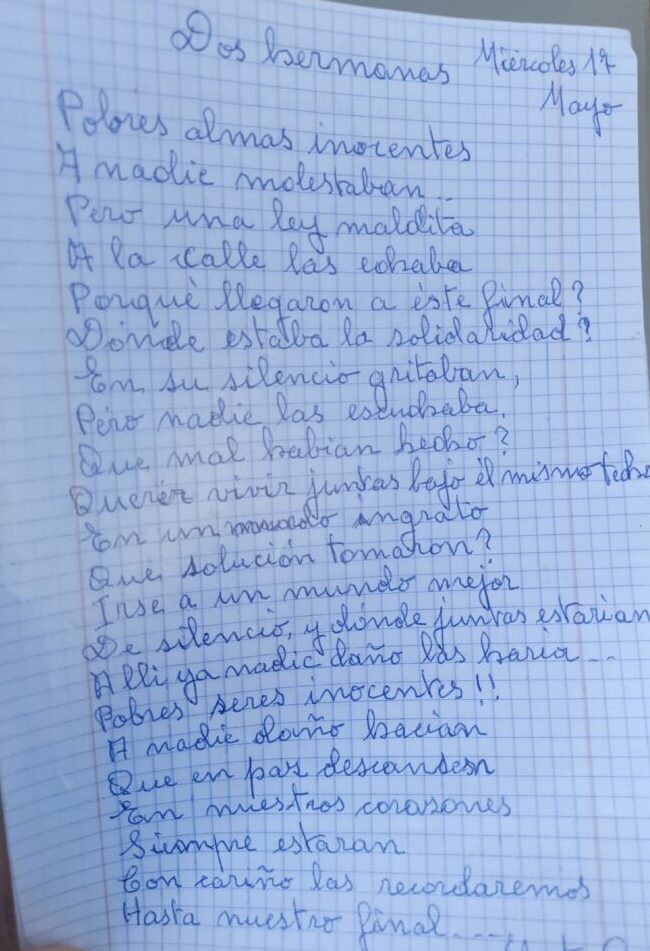 Dos hermanas Miércoles 17
Mayo
Pobres almas inocentes
A nadie molestaban...
Pero una ley maldita
A la calle las echaba
Porqué llegaron a éste final?
Dónde estaba la solidaridad?
En su silencio gritaban,
Pero nadie las escuchaba.
Que mal habian hecho?
Querer vivir juntas bajo el mismo techo
En un ingrato
Que solución tomaron?
Irse a un mundo mejor
De silencio, y dónde juntas estarian
Alli ya nadie daño las haria...
Pobres seres inocentes!!
A nadie daño hacian
Que en paz descansen
En nuestros corasones
Siempre estaran
Con cariño las recordaremos
Hasta nuestro final....